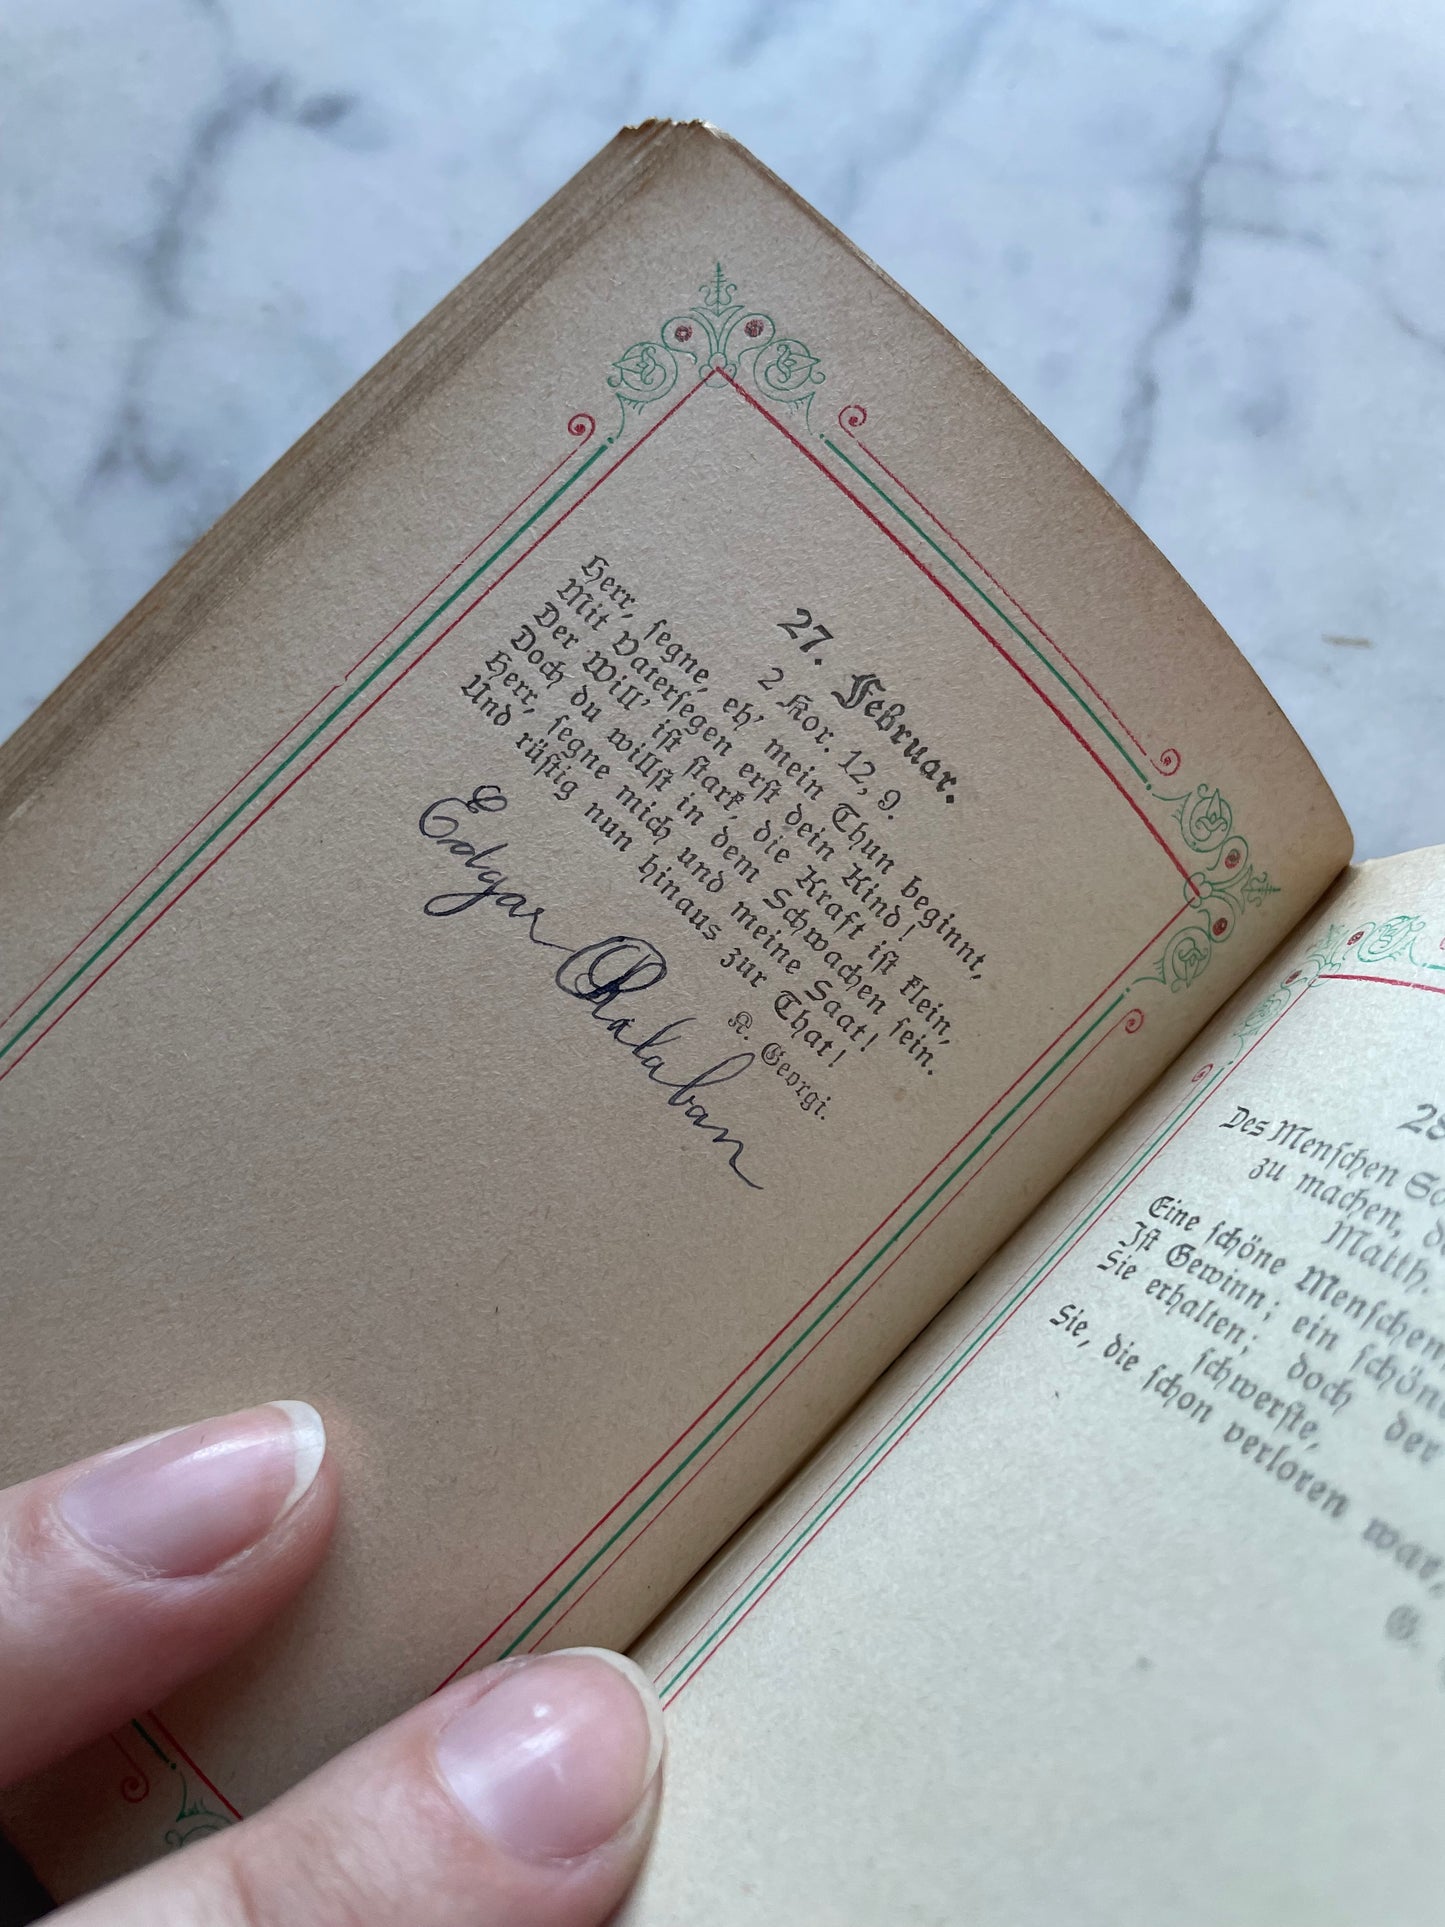 27. Februar.
2 Kor. 12, 9.
Herr, segne, eh' mein Thun beginnt,
Mit Vatersegen erst dein Kind!
Der Will' ist stark, die Kraft ist klein,
Doch du willst in dem Schwachen sein.
Herr, segne mich und meine Saat!
Und rüstig nun hinaus zur That!
K. Georgi.
Edgar Rataban
28
Des Menschen So
zu machen, d
Matth.
Eine schöne Menschen
Ist Gewinn; ein schön
Sie erhalten; doch der
schwerste,
Sie, die schon verloren war,
G.